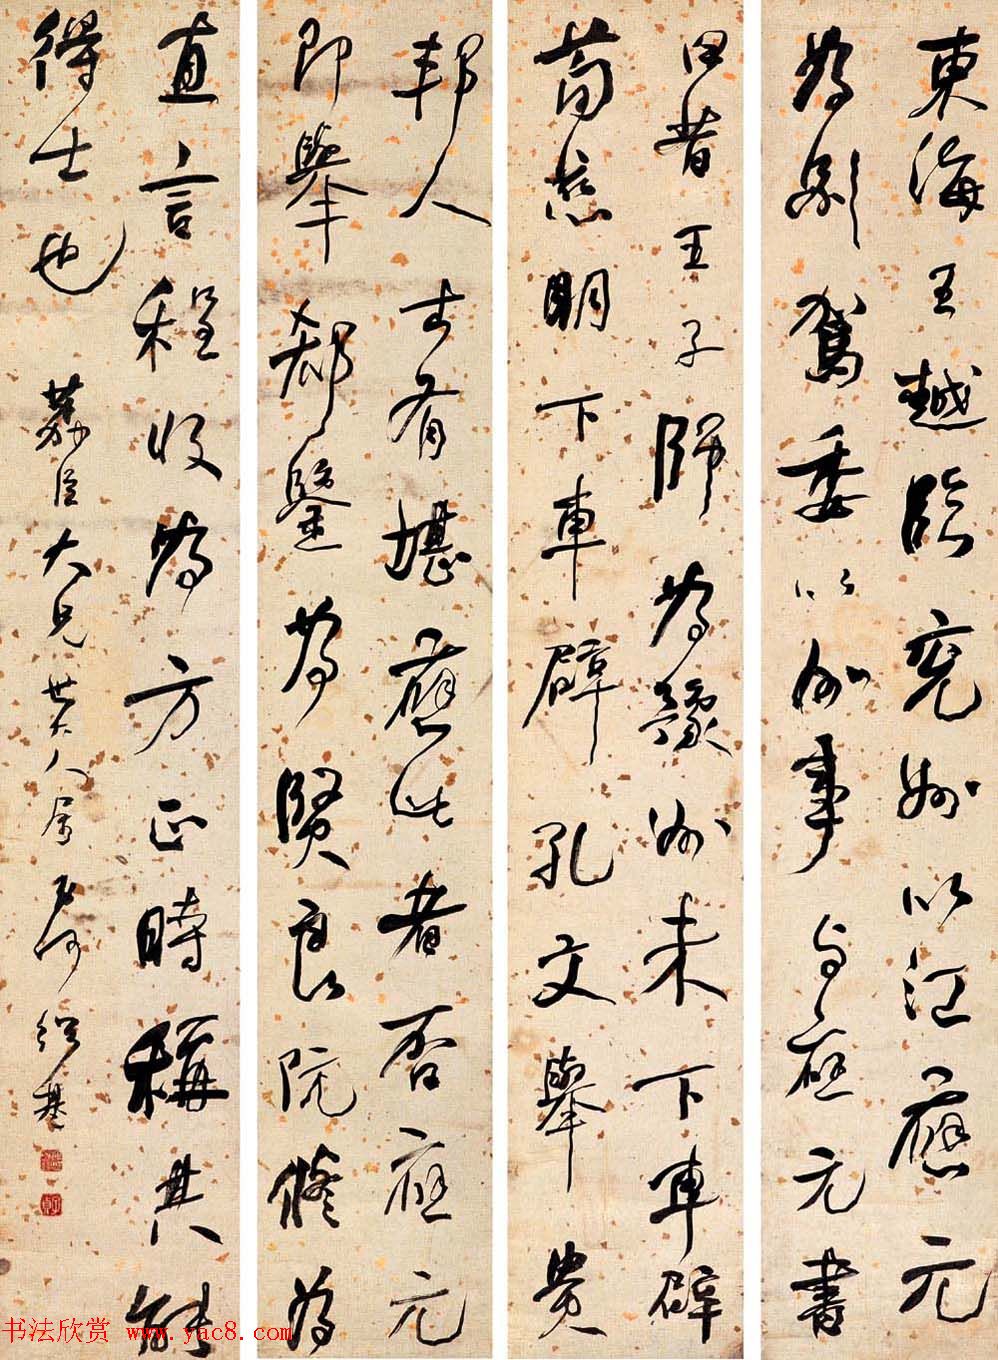 東海王越臨兖州以江應元
為別駕委以州事與應元書
曰昔王子師為豫州未下車辟
荀慈明下車辟孔文舉貴
邦人士有堪應此者否應元
即舉郗鑒為賢良阮脩為
直言程收為方正時稱其能
得士也
荔臣大兄世大人屬 弟何紹基
书法欣赏 www.yac8.com